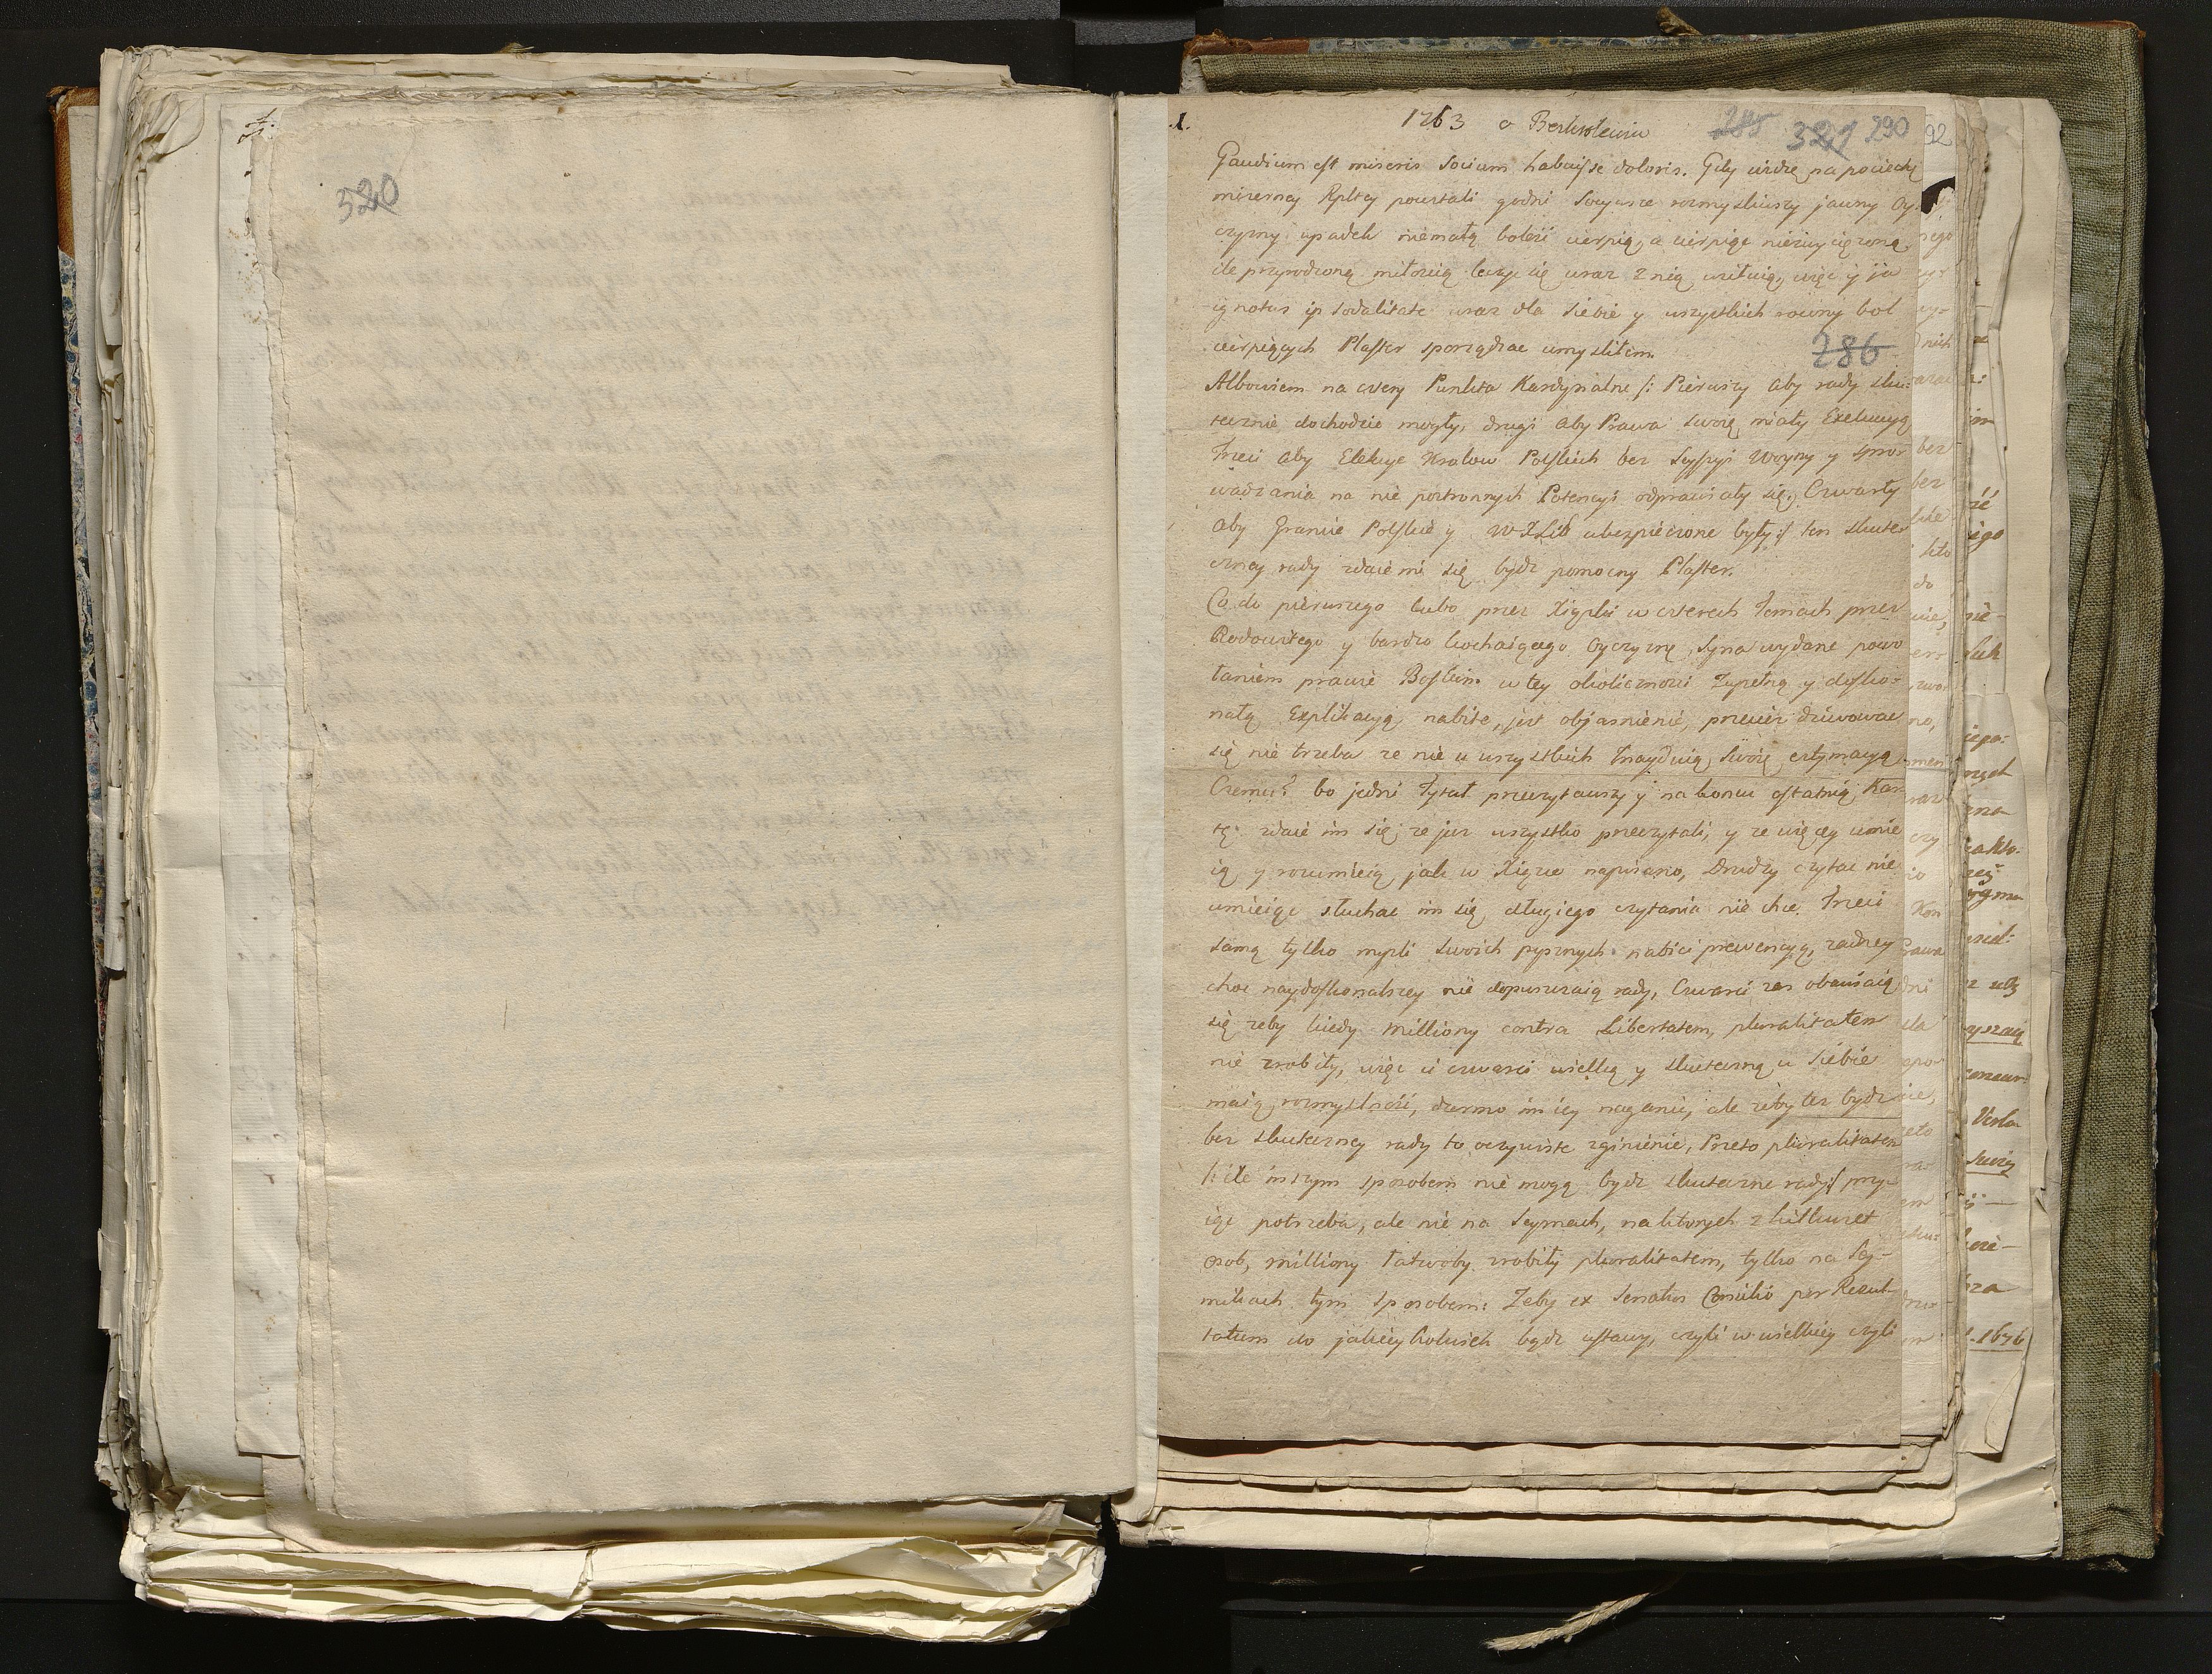 520
1.
1763 o Bezkrolewiu
285 321 290
92
Gaudium est miseris socium habuisse doloris. Gdy widzę na pociechę
mizerney Rpltey powstali godni Socyusze rozmysliwszy jawny Oy-
czyzny upadek niemałą boleść cierpią, a cierpiąc niezwyciężoną
ile przyrodzoną miłoscią leczyc się wraz z nią usiłuią, więc y ja
ignotus ip sodalitate wraz dla siebie y wszystkich rowny bol
cierpiących Plaster sporządzac umysliłem.
286
Albowiem na cztery Punkta Kardynalne /: Pierwszy aby rady sku-
tecznie dochodzic mogły, drugi aby Prawa swoię miały Exekucyą
Trzeci aby Elekcye Krolow Polskich bez Scyssyi Woyny y spro-
wadzania na nie postronnych Potencyi odprawiały się, Czwarty
aby Granice Polskie y WXLit ubezpieczone były :/ ten skute-
czney rady zdaie mi się bydz pomocny Plaster.
Co do pierwszego lubo przez Xiążki w czterech Tomach przez
Rodowitego y bardzo kochaiącego Oyczyznę Syna wydane powo-
łaniem prawie Boskim w tey okolicznosci Zupełną y dosko-
nałą Explikacyą nabite, jest objasnienie, przecież dziwowac
się nie trzeba ze nie u wszystkich znayduią swoię estymacyą
Czemu? bo jedni Tytuł przeczytawszy y na koncu ostatnią Kar-
tę: zdaie im się, ze juz wszystko przeczytali, y ze więcey umie-
ią y rozumieią jak w Xiązce napisano, Drudzy czytac nie
umieiąc słuchac im się długiego czytania nie chce. Trzeci
samą tylko mysli swoich pysznych nabici prewencyą, zadney
choc naydoskonalszey nie dopuszczaią rady, Czwarci zas obawiaią
się zeby kiedy milliony contra Libertatem, pluralitatem
nie zrobiły, więc ci czwarci wielką y skuteczną u siebie
maią rozmyslność, darmo im icy naganic, ale zeby tez bydz
bez skuteczney rady to oczywiste zginienie, Przeto pluralitatem
/: ile inszym sposobem nie mogą bydz skuteczne rady :/ przy-
iąc potrzeba, ale nie na Seymach, na ktorych z kilkuset
osob, milliony łatwoby zrobiły pluralitatem, tylko na Sey-
mikach tym sposobem: Zeby ex Senatus Consilio per Rezul-
tatum do jakieykolwiek bądz ustawy, czyli w wielkiey czyli